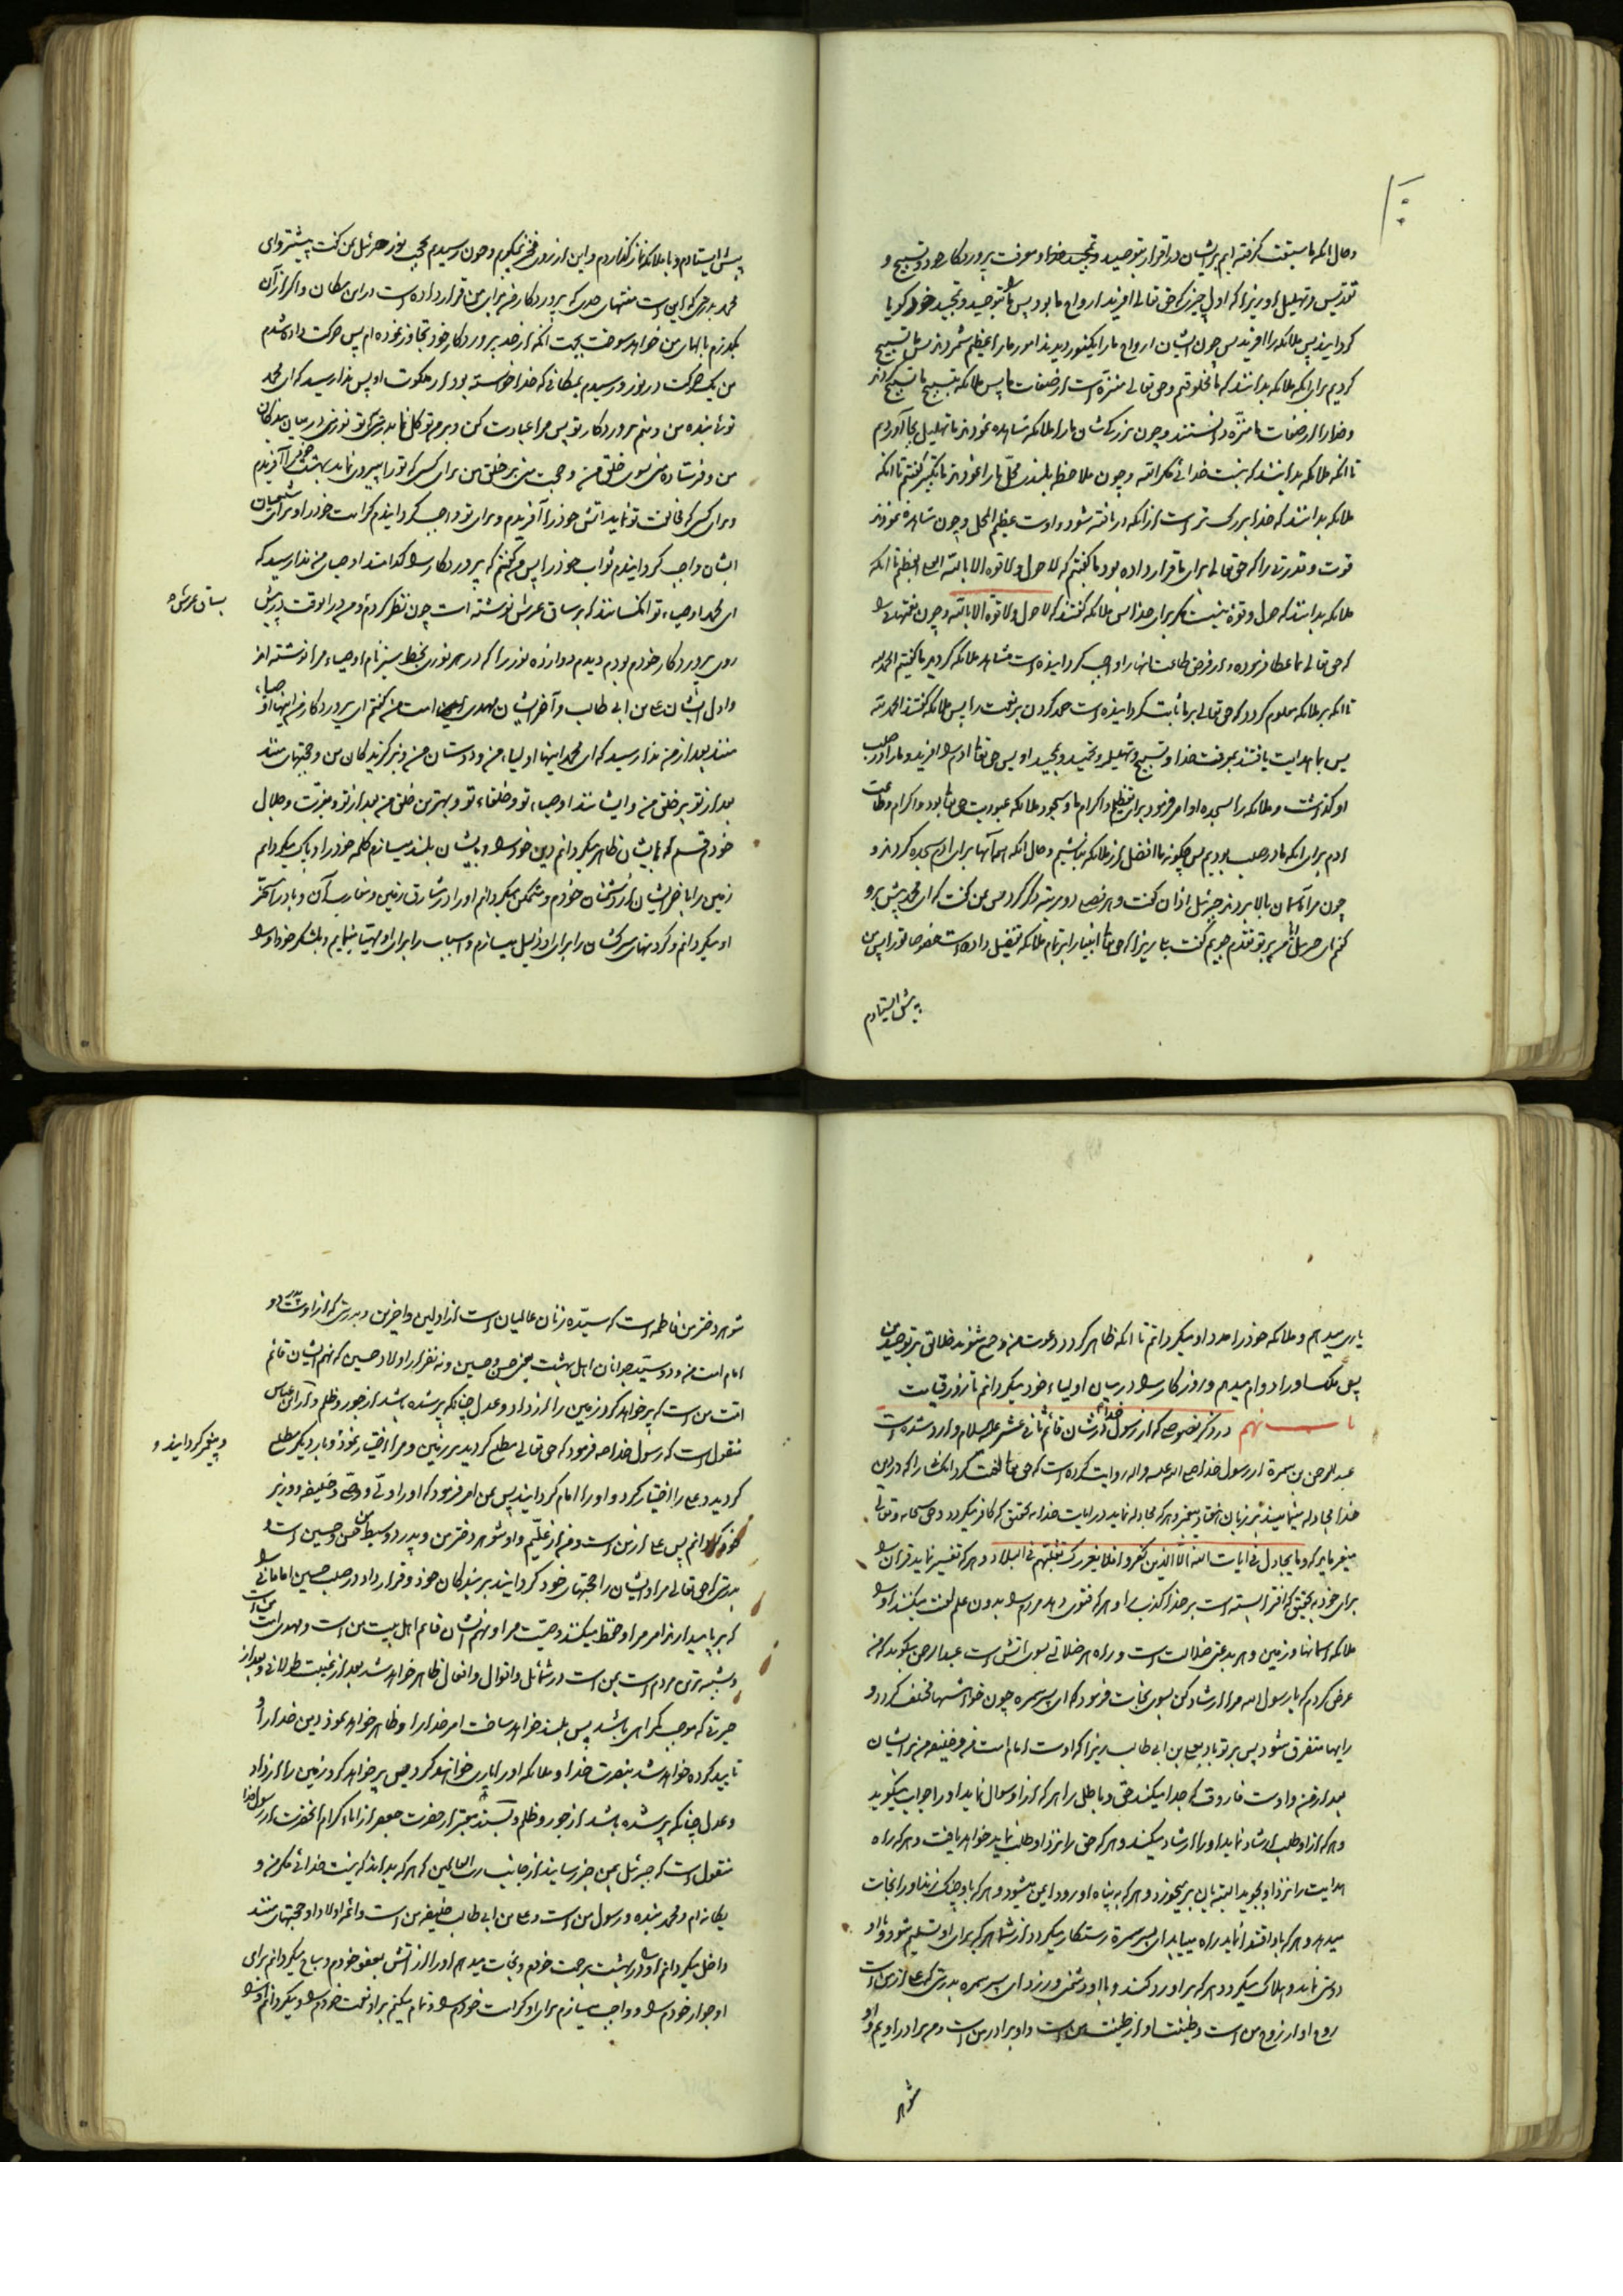 و حال آنکه ما سبقت گرفته ایم بر ایشان در اقرار بتوحید و تمجید خدا و معرفت پروردگار خود و تسبیح و
تقدیس و تهلیل او زیرا که اول چیزی که حق تعالی افرید ارواح ما بود پس ما را بتوحید و تمجید خود گویا
گردانید پس ملائکه را افرید پس چون ایشان ارواح ما را یکنور دیدند امور ما را عظیم شمردند پس ما تسبیح
کردیم برای انکه ملائکه بدانند که ما مخلوقیم و حق تعالی منزه است از صفات ما پس ملائکه بتسبیح ما تسبیح کردند
و خدا را از صفات ما منزّه دانستند و چون بزرگی شان ما را ملائکه مشاهده نمودند ما تهلیل بجا آوردیم
تا انکه ملائکه بدانند که نیست خدائی مکر الله و چون ملاحظه بلندی محلّ ما را نمودند ما تکبیر گفتیم تا انکه
ملائکه بدانند که خدا بزرک تر است از انکه دریافته شود و اوست عظیم المحل و چون مشاهده نمودند
قوت و قدرتی را که حق تعالی برای ما قرار داده بود ما گفتیم که لا حول و لا قوة الا بالله العلی العظیم تا انکه
ملائکه بدانند که حول و قوة نیست مکر برای خدا پس ملائکه گفتند که لا حول و لا قوة الا بالله و چون نعمتهائی را
که حق تعالی بما عطا فرموده و از فرض طاعت ما انها را واجب گردانیده است مشاهده ملائکه گردید ما گفتیم الحمد لله
تا انکه بر ملائکه معلوم گردد که حق تعالی بر ما ثابت گردانیده است حمد کردن بر نعمت را پس ملائکه گفتند الحمد لله
پس بما هدایت یافتند بمعرفت خدا و تسبیح و تهلیل و تحمید و تمجید او پس حق تعالی ادم را افرید و ما را در صلب
او گذاشت و ملائکه را بسجده او امر فرمود برای تعظیم و اکرام ما و سجود ملائکه عبودیت حق تعالی بود و اکرام و طاعت
ادم برای انکه ما در صلب او بودیم پس چکونه ما افضل از ملائکه نباشیم و حال انکه همه آنها برای ادم سجده کردند و
چون مرا بآسمان بالا بردند جبرئیل اذان گفت و هر فصلی دو مرتبه ذکر کرد پس بمن گفت که ای محمد پیش برو
گفتم ای جبرئیل ایا من بر تو تقدم جویم گفت بلی زیرا که حق تعالی انبیا را بر تمام ملائکه تفضیل داده است خصوصا تو را پس من
پیش ایستادم
پیش ایستادم و با ملائکه نماز گذاردم و این از روی فخر نمیگویم و چون رسیدم بحجب نور جبرئیل بمن گفت پیشتر رو ای
محمد بدرستی که این است منتهای حدی که پروردکار من برای من قرار داده است در این مکان و اگر از آن
بگذرم بالهای من خواهد سوخت بجهت انکه از حد پروردکار خود تجاوز نموده ام پس حرکت داده شدم
من یک حرکت در نور و رسیدم بمکانی که خدا خواسته بود از ملکوت او پس ندا رسید که ای محمد
توئی بنده من و منم پروردکار تو پس مرا عبادت کن و بر من توکل نما بدرستی که تو نور منی در میان بندکان
من و فرستاده منی بسوی خلق من و حجت منی بر خلق من برای کسی که تو را پیروی نماید بهشت خود را آفریدم
و برای کسی که مخالفت تو نماید اتش خود را آفریدم و برای تو واجب گردانیدم کرامت خود را و برای شیعیان
ایشان واجب گردانیدم ثواب خود را پس من گفتم که پروردکارا کدامند اوصیای من ندا رسید که
ای محمد اوصیاء تو انکسانند که بر ساق عرش نوشته است چون نظر کردم و من در انوقت در پیش
بساق عرش ۳
روی پروردکار خودم بودم دیدم دوازده نور را که در هر نوری بخط سبز نام اوصیاء مرا نوشته اند
و اول ایشان علی بن ابی طالب و آخر ایشان مهدی امت من گفتم ای پروردکار من اینها اوصیاء
منند بعد از من ندا رسید که ای محمد اینها اولیاء من و دوستان من و برگزیدکان من و حجتهای منند
بعد از تو بر خلق من و ایشانند اوصیاء تو و خلفاء تو و بهترین خلق من بعد از تو و بعزّت و جلال
خودم قسم که بایشان ظاهر میگردانم دین خود را و بایشان بلند میسازم کلمه خود را و پاک میگردانم
زمین را باخر ایشان از دشمنان خودم و متمکن میگردانم او را در مشارق زمین و مغارب آن و باد را مسخّر
او میگردانم و گردنهای سرکشان را برای او ذلیل میسازم و اسباب را برای او مهیّا مینمایم و بلشکر خود او را
یاری میدهم و ملائکه خود را مدد او میگردانم تا انکه ظاهر گردد دعوت من و جمع شوند خلائق بر توحید من
پس ملک او را دوام میدهم و روزکار را در میان اولیاء خود میگردانم تا روز قیامت
باب نهم در ذکر نصوصی که از رسول خدا در شان قائم ثانی عشر علیه السلام وارد شده است
عبد الرحمن بن سمرة از رسول خدا صلی الله علیه و اله روایت کرده است که حق تعالی لعنت کرد انکسانرا که در دین
خدا مجادله مینمایند بر زبان هفتاد پیغمبر و هر که مجادله نماید در ایات خدا بتحقیق که کافر میگردد و حق سبحانه و تعالی
میفرماید که و ما یجادل فی ایات الله الّا الذین کفروا فلا یغررک تقلبهم فی البلاد و هر که تفسیر نماید قران را
برای خود بتحقیق که افترا بسته است بر خدا کذب را و هر که فتوی دهد مردم را بدون علم لعنت میکنند او را
ملائکه اسمانها و زمین و هر بدعتی ضلالت است و راه هر ضلالتی بسوی اتش است عبد الرحمن میگوید که من
عرض کردم که یا رسول الله مرا ارشاد کن بسوی نجات فرمود که ای پسر سمره چون خواهشها مختلف گردد و
رایها متفرق شود پس بر تو باد بعلی بن ابی طالب زیرا که اوست امام امت من و خلیفه من بر ایشان
بعد از من و اوست فاروقی که جدا میکند حق و باطل را هر که از او سوال نماید او را جواب میگوید
و هر که از او طلب ارشاد نماید او را ارشاد میکند و هر که حق را نزد او طلب نماید خواهد یافت و هر که راه
هدایت را نزد او بجوید البته بان بر میخورد و هر که به پناه او رود ایمن میشود و هر که باو چنگ زند او را نجات
میدهد و هر که باو اقتدا نماید راه مییابد ای پسر سمرة رستکار میگردد از شما هر که برای او تسلیم شود و با او
دوستی نماید و هلاک میگردد هر که بر او رد کند و با او دشمنی ورزد ای پسر سمره بدرستی که علی از من است
روح او از روح من است و طینت او از طینت من است و او برادر من است و من برادر اویم و او
شوهر
شوهر دختر من فاطمه است که سیّده زنان عالمیان است از اولین و اخرین و بدرستی که از اوست دو
امام امت من و دو سیّد جوانان اهل بهشت یعنی حسن و حسین و نه نفر از اولاد حسین که نهم ایشان قائم
امّت من است که پر خواهد کرد زمین را از داد و عدل چنانکه پر شده باشد از جور و ظلم و از ابن عباس
منقول است که رسول خدا ص فرمود که حق تعالی مطلع گردید بر زمین و مرا اختیار نمود و بار دیگر مطلع
و پیغمبر گردانید و
گردید و علی را اختیار کرد و او را امام گردانید پس بمن امر فرمود که او را ولّی و وصّی و خلیفه و وزیر
خود گردانم پس علی از من است و من از علیّم و او شوهر دختر من و پدر دو سبط من حسن و حسین است و
بدرستی که حق تعالی مرا و ایشان را حجتهای خود گردانید بر بندکان خود و قرار داد در صلب حسین امامانی را
که بر پا میدارند امر مرا و حفظ میکنند وصیّت مرا و نهم ایشان قائم اهل بیت من است و مهدی امت من است
و شبیه ترین مردم است بمن در شمائل و اقوال و افعال ظاهر خواهد شد بعد از غیبت طولانی و بعد از
حیرتی که موجب گمراهی باشد پس بلند خواهد ساخت امر خدا را و ظاهر خواهد نمود دین خدا را و
تایید کرده خواهد شد بنصرت خدا و ملائکه او را یاری خواهند کرد پس پر خواهد کرد زمین را از داد
و عدل چنانکه پر شده باشد از جور و ظلم و بسند معتبر از حضرت جعفر از اباء کرام آنحضرت از رسول خدا
منقول است که جبرئیل بمن خبر رسانید از جانب رب العالمین که هر که بداند که نیست خدائی مکر من و
یکانه ام و محمد بنده و رسول من است و علی بن ابی طالب خلیفه من است و ائمه اولاد او حجتهای منند
داخل میگردانم او را در بهشت برحمت خودم و نجات میدهم او را از آتش بعفو خودم و مباح میگردانم برای
او جوار خودم را و واجب میسازم برای او کرامت خودم را و تمام میکنم بر او نعمت خودم را و میگردانم او را